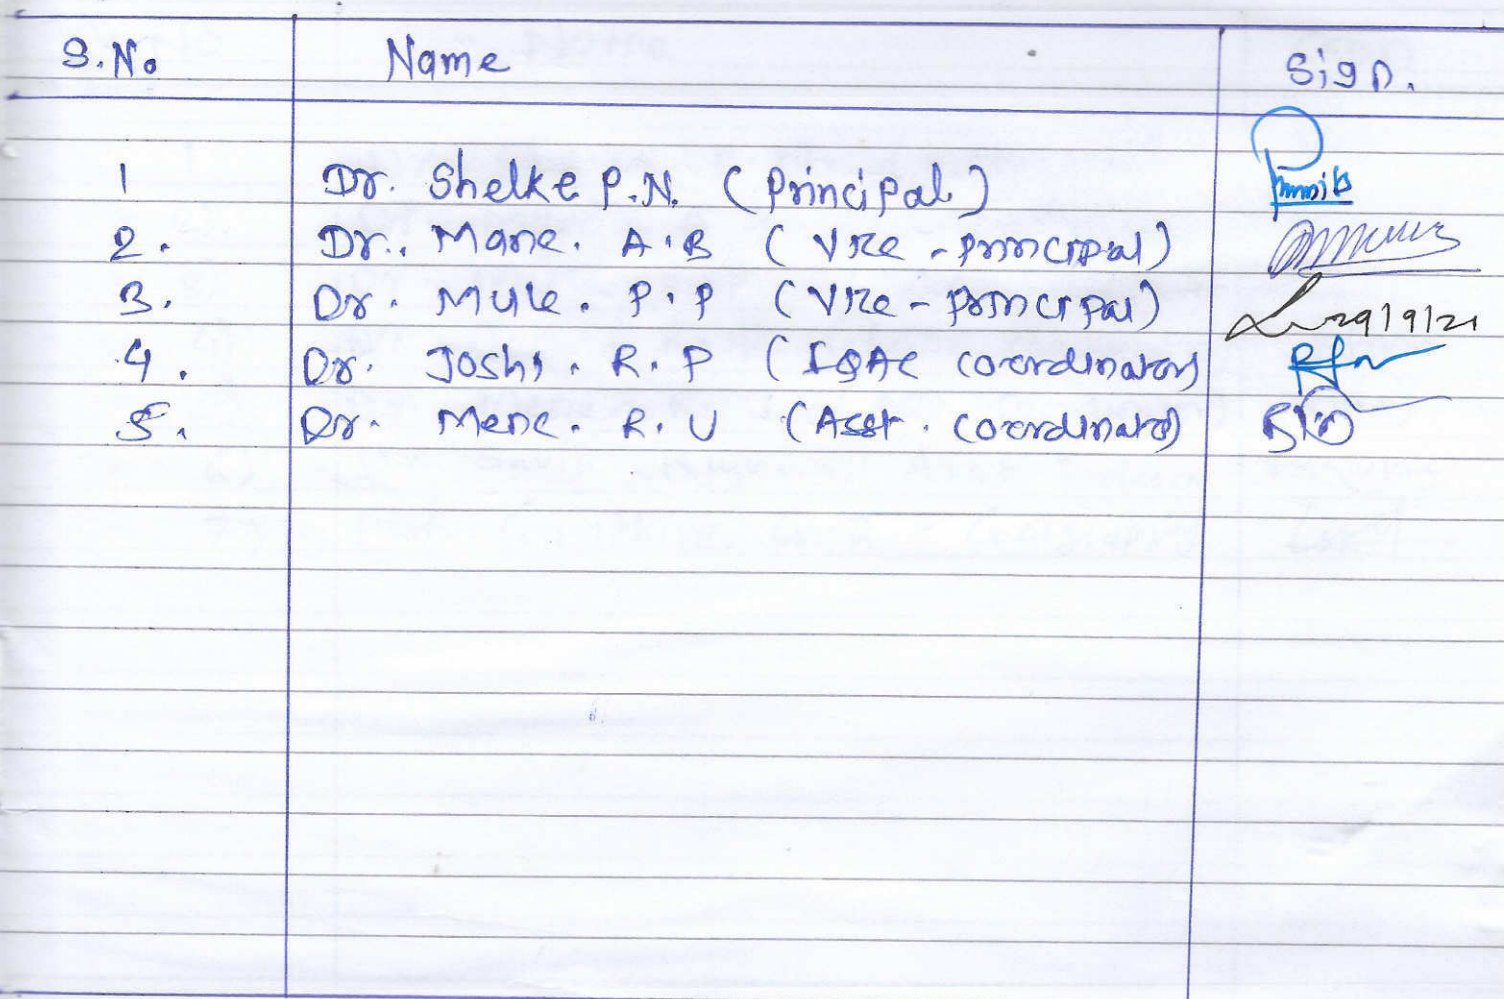 S.No Name Sign.
1 Dr. Shelke P.N. (Principal)
2. Dr. Mane. A.B (Vice-principal)
3. Dr. Mule. P.P (Vice-principal) 29/9/21
4. Dr. Joshi. R.P (IQAC coordinator)
5. Dr. Mene. R.U (Asst. coordinator)